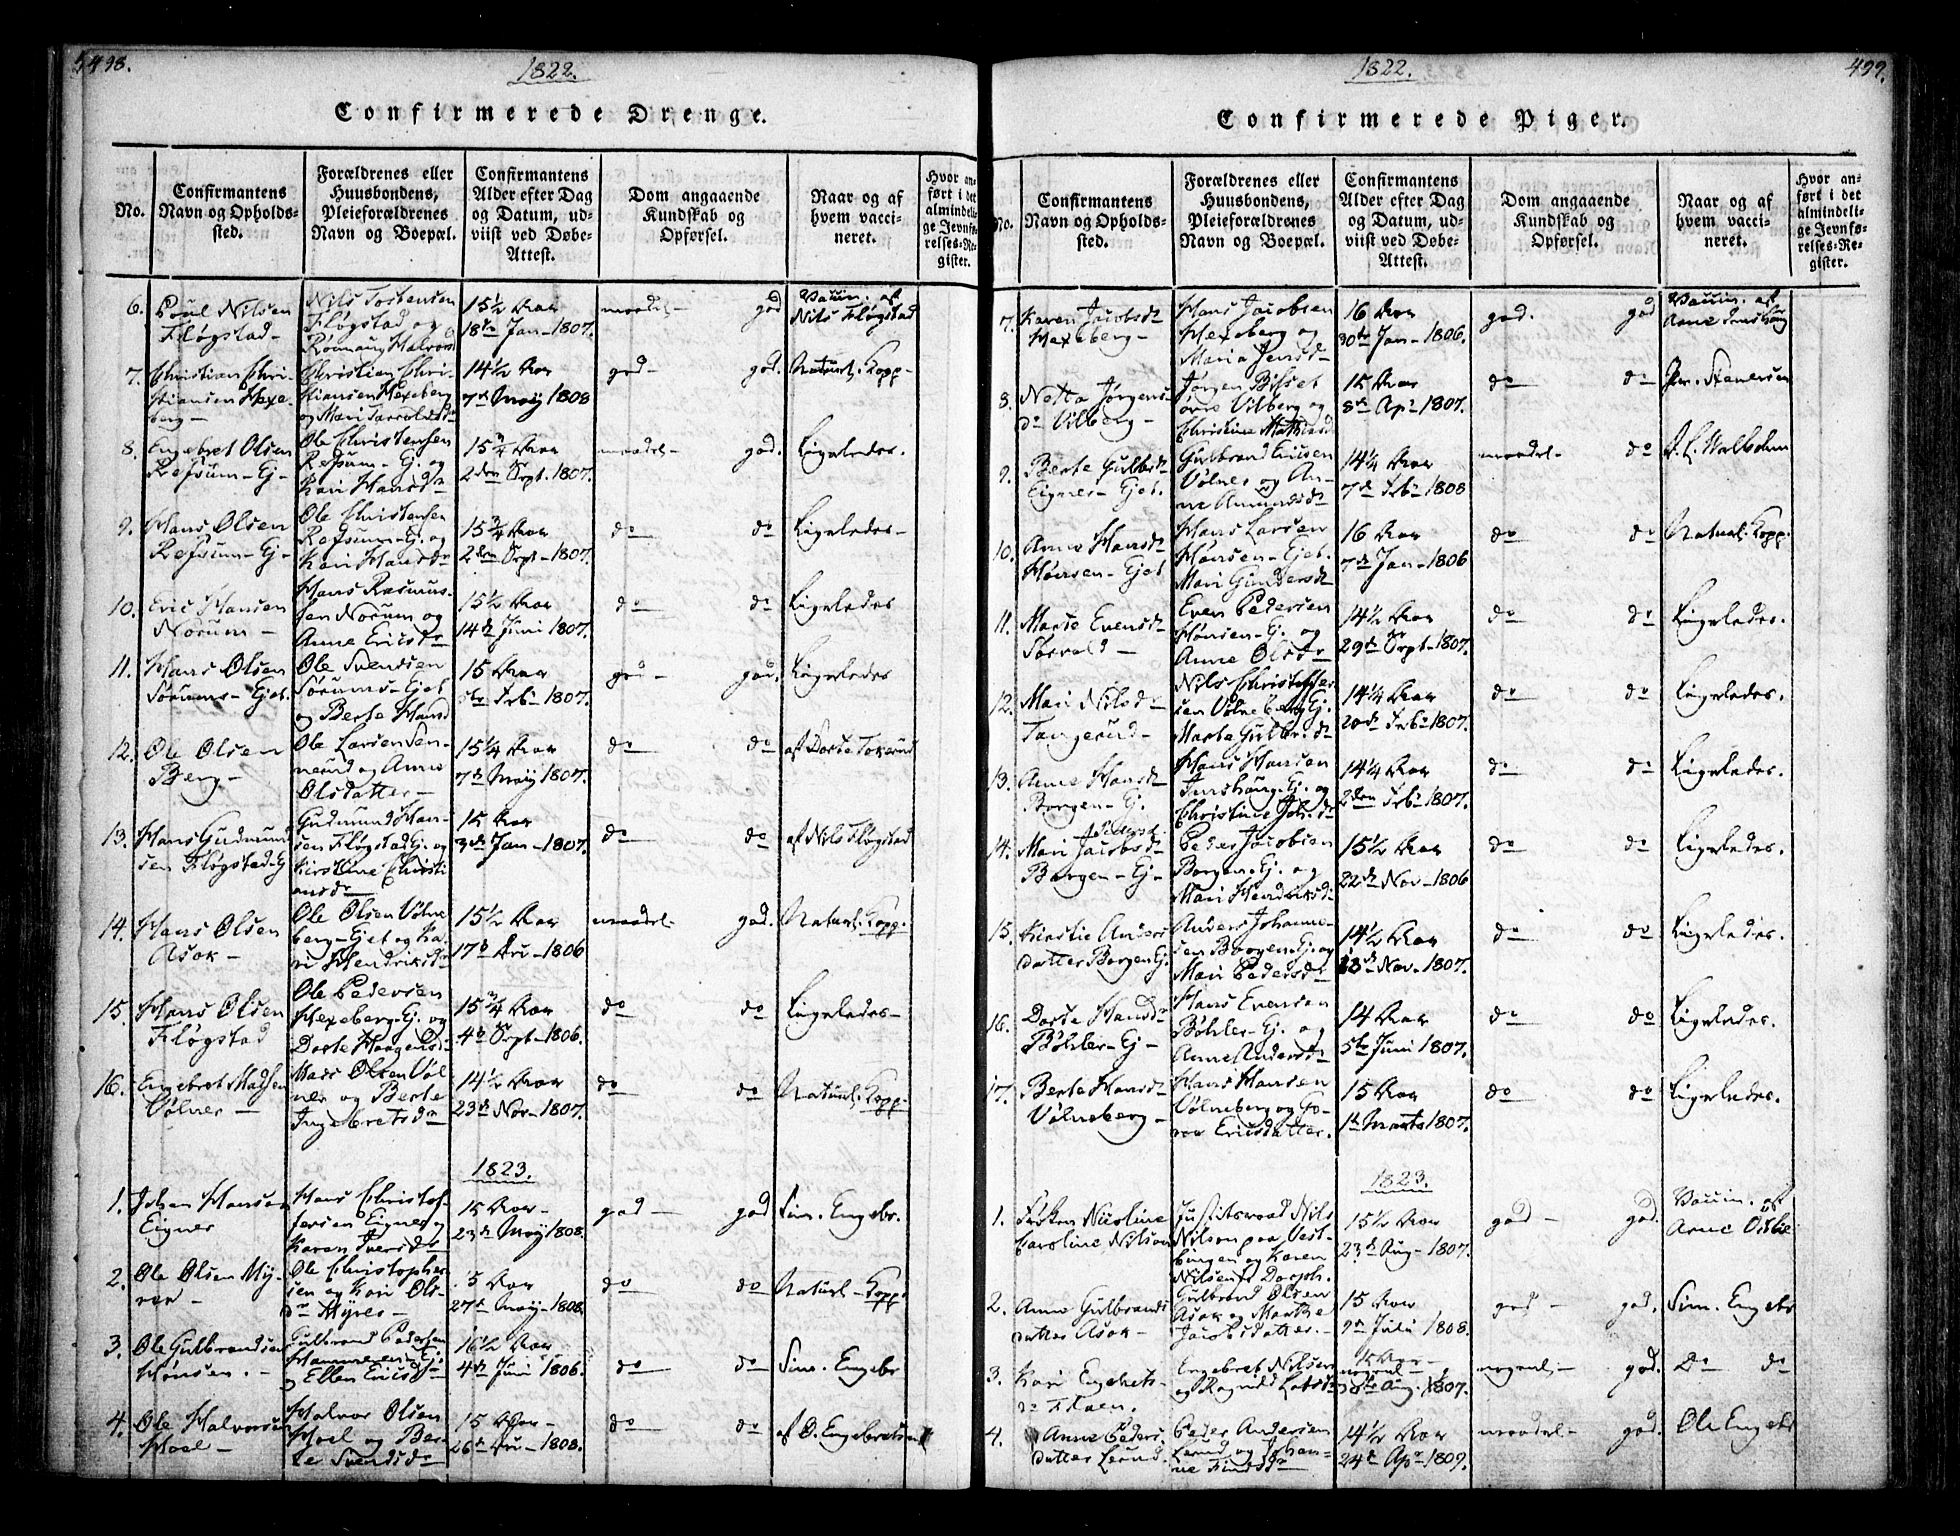 498.
1822.
Confirmerede Drenge.
No.
Confirmantens
Navn og Opholds-
sted.
Forældrenes eller
Huusbondens,
Pleieforældrenes
Navn og Boepæl.
Confirmantens
Alder efter Dag
og Datum, ud-
viist ved Døbe-
Attest.
Dom angaaende
Kundskab og
Opførsel.
Naar og af
hvem vacci-
neret.
Hvor an-
ført i det
almindeli-
ge Jevnfø-
relses-Re-
gister.
6. Poul Nilsen
Fløgstad-
Nils Tostensen
Fløgstad og
Rønnaug Halvorsd
15½ Aar
18de Jan-1807.
maadel-
god
Vaccin. af
Nils Fløgstad
7. Christian Chri-
stiansen Hexe-
berg-
Christian Chri-
stiansen Hexeberg
og Mari Taraldsd
14½ Aar
7de Maÿ 1808
god-
god.
Naturl. Kopp-
8. Engebret Olsen
Refsum-Ej-
Ole Christensen
Refsum-Ej. og
Kari Hansdr
15¾ Aar
2den Sept. 1807.
maadel-
god.
Ligeledes.
9. Hans Olsen
Refsum-Ej-
Ole Christensen
Refsum-Ej. og
Kari Hansdr
15¾ Aar
2den Sept-1807.
do
do
Ligeledes-
10. Eric Hansen
Norum-
Hans Rasmus-
sen Norum og
Anne Ericsdr
15½ Aar
14de Juni 1807.
do
do
Ligeledes
11. Hans Olsen
Sørums-Ejet.
Ole Svendsen
Sørums-Ejet
og Berte Hansd
15 Aar
5te Feb. 1807.
god-
god.
Ligeledes
12. Ole Olsen
Berg-
Ole Larsen Sen-
nerud og Anne
Olsdatter-
15¼ Aar
7de Maÿ 1807.
do
do
af Dorte Tokerud
13. Hans Gudmund
sen Fløgstad-Ej
Gudmund Han-
sen Fløgstad Ej. og
Kirstine Christi
ansdr
15 Aar
3de Jan-1807.
do
do
af Nils Fløgstad
14. Hans Olsen
Asak-
Ole Olsen Vølne
berg-Ejet og Ka-
ri Hendriksdr
15½ Aar
17de Au-1806
maadel-
god.
Naturl. Kopp.
15. Hans Olsen
Fløgstad
Ole Pedersen
Hexeberg-Ej. og
Dorte Haagensd
15¾ Aar
4de Sept-1806.
do
do
Ligeledes-
16. Engebret Madsen
Vølner-
Mads Olsen Vøl
ner og Berte
Ingebretsdr
14½ Aar
23de Nov-1807.
do
do
Naturl. Kopp-
1823.
1. Johan Hansen
Eigner
Hans Christof-
fersen Eigner og
Karen Iversdr
15 Aar-
23de Maÿ 1808.
god-
god
Sim. Engebr.
2. Ole Olsen My-
rer-
Ole Christopher
sen og Kari Ols-
dr Myrer-
15 Aar
27de Maÿ-1808.
do
do
Naturl-Kopp.
3. Ole Gulbrandsen
Hønsen.-
Gulbrand Pedersen
Hammeren Ej.
og Ellen Ericsdr
16½ Aar
4de Juni 1806.
do
do
Sim. Engebr
4. Ole Halvorsen
Hoel-
Halvor Olsen
Hoel og Ber-
te Svendsdr
15 Aar-
26de Au-1808.
do
do
af O. Engebretsen
499.
1822.
Confirmerede Piger.
No.
Confirmantens
Navn og Opholds-
sted.
Forældrenes eller
Huusbondens,
Pleieforældrenes
Navn og Boepæl.
Confirmantens
Alder efter Dag
og Datum, ud-
viist ved Døbe-
Attest.
Dom angaaende
Kundskab og
Opførsel.
Naar og af
hvem vacci-
neret.
Hvor an-
ført i det
almindeli-
ge Jevnfø-
relses-Re-
gister.
7. Karen Jacobsdr
Hexeberg-
Hans Jacobsen
Hexeberg og
Maria Jensd-
16 Aar
30te Jan-1806.
god.
god
Vaccin. af
Arne Imshaug
8. Netta Jørgens-
dr Vilberg-
Jørgen Bisset
øvre Vilberg og
Christine Mathisd
15 Aar
8de Apr 1807.
do
do
Pr. Stenersen
9. Berte Gulbrdr
Eigner-Ejet.
Gulbrand Ericsen
Vølner og An-
ne Amundsdr
14¼ Aar
7de Feb. 1808
maadel-
do
10. Anne Hansdr
Hønsen-Ejet
Hans Larsen
Hønsen-Ejet.
Mari Gundersdr
16 Aar
7de Jan-1806
do
do
Naturl. Kopp.
11. Marte Evensdr
Even Pedersen
Hønsen-Ej. og
Anne Olsdr
14½ Aar
29de Sept-1807.
do
do
Ligeledes.
12. Mari Nilsdr
Tangerud-
Nils Christoffer
sen Vølneberg Ej.
Marte Gulbr. dr
14¼ Aar
20de Feb. 1807.
do
do
Ligeledes.
13. Anne Hansdr
Borgen-Ej.
Hans Hansen
Imshaug-Ej. og
Christine Joh.dr
14¼ Aar
2den Feb. 1807.
do
do
Ligeledes.
14. Mari Jacobsdr
Borgen-Ej-
Peder Jacobsen
Borgen-Ej. og
Mari Hendriksd
15½ Aar
22de Nov-1806
do
do
Ligeledes.
15. Kirstie Anders
datter Borgen Ej.
Anders Johanne-
sen Borgen-Ej. og
Mari Pedersdr
14½ Aar
18de Nov-1807.
do
do
Ligeledes.
16. Dorte Hansdr
Bøhler-Ej-
Hans Evensen
Bøhler-Ej. og
Anne Andersdr
14 Aar
5te Juni 1807.
do
do
Ligeledes.
17. Berte Hansdr
Vølneberg-
Hans Hansen
Vølneberg og Go-
roe Ericsdatter.
15 Aar
1de Marts 1807.
do
do
Ligeledes.
1823.
1. Frøken Nicoline
Caroline Nilson
Justitsraad Nils
Nilson paa Vest-
bingen og Karen
Nilsen f. Dorph.
15½ Aar
23de Aug-1807.
god-
god.
Vaccin. af
Arne Østbie
2. Anne Gulbrands
datter Asak-
Gulbrand Olsen
Asak og Marthe
Jacobsdatter.-
15 Aar
9de Juli 1808.
god-
god.
Sim. Engebr
3. Kari Engebrets-
dr Flaen.
Engebret Nilsen
og Ragnild Larsdr
15 Aar-
8de Aug. 1807.
nogenl-
god.
Do do
4. Anne Peders
datter Lerud.
Peder Andersen
Lerud og Johan-
ne Findsdr
14½ Aar
24de Apr 1809.
maadel-
god.
Ole Engebr